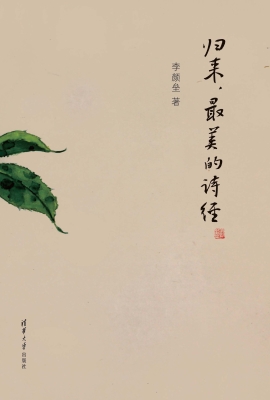 归来，最美的诗经
李颜垒 著
清华大学出版社